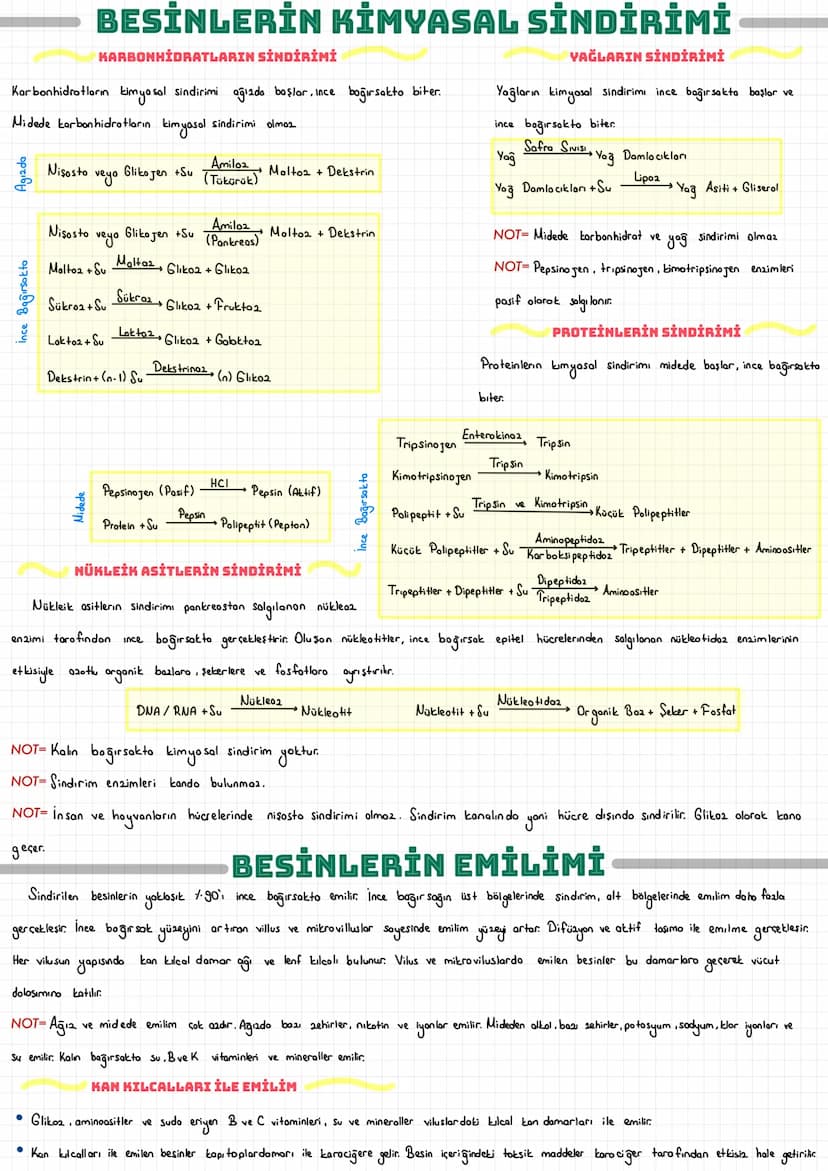 BESİNLERİN KİMYASAL SİNDİRİMİ
KARBONHİDRATLARIN SİNDİRİMİ
Karbonhidratların kimyasal sindirimi ağızda başlar, ince bağırsakta biter.
Midede karbonhidratların kimyasal sindirimi olmaz
Ağızda
Nişasta veya Glikojen +Su Amilaz (Tükürük) → Maltoz + Dekstrin
İnce Bağırsakta
Nişasta veya Glikojen +Su Amilaz (Pankreas) → Maltoz + Dekstrin
Maltoz +Su Maltaz → Glikoz + Glikoz
Sükroz+Su Sükraz → Glikoz + Fruktoz
Laktoz+Su Laktaz → Glikoz + Galaktoz
Dekstrin+(n-1) Su Dekstrinaz → (n) Glikoz
YAĞLARIN SİNDİRİMİ
Yağların kimyasal sindirimi ince bağırsakta başlar ve
ince bağırsakta biter.
Yağ Safra Sıvısı → Yağ Damlacıkları
Yağ Damlacıkları +Su Lipaz → Yağ Asiti + Gliserol
NOT= Midede karbonhidrat ve yağ sindirimi olmaz
NOT= Pepsinojen, tripsinojen, kimotripsinojen enzimleri
pasif olarak salgılanır.
PROTEİNLERİN SİNDİRİMİ
Proteinlerin kimyasal sindirimi midede başlar, ince bağırsakta
biter.
Midede
Pepsinojen (Pasif) HCl → Pepsin (Aktif)
Protein +Su Pepsin → Polipeptit (Pepton)
İnce Bağırsakta
Tripsinojen Enterokinaz → Tripsin
Kimotripsinojen Tripsin → Kimotripsin
Polipeptit +Su Tripsin ve Kimotripsin → Küçük Polipeptitler
Küçük Polipeptitler + Su Aminopeptidaz Karboksipeptidaz → Tripeptitler + Dipeptitler + Aminoasitler
Tripeptitler + Dipeptitler + Su Dipeptidaz Tripeptidaz → Aminoasitler
NÜKLEİK ASİTLERİN SİNDİRİMİ
Nükleik asitlerin sindirimi pankreastan salgılanan nükleaz
enzimi tarafından ince bağırsakta gerçekleştirir. Oluşan nükleotitler, ince bağırsak epitel hücrelerinden salgılanan nükleotidaz enzimlerinin
etkisiyle azotlu organik bazlara, şekerlere ve fosfatlara ayrıştırılır.
DNA / RNA +Su Nükleaz → Nükleotit
Nükleotit + Su Nükleotidaz → Organik Baz + Şeker + Fosfat
NOT= Kalın bağırsakta kimyasal sindirim yoktur.
NOT= Sindirim enzimleri kanda bulunmaz.
NOT= İnsan ve hayvanların hücrelerinde nişasta sindirimi olmaz. Sindirim kanalında yani hücre dışında sindirilir. Glikoz olarak kana
geçer.
BESİNLERİN EMİLİMİ
Sindirilen besinlerin yaklaşık %90'ı ince bağırsakta emilir. İnce bağırsağın üst bölgelerinde sindirim, alt bölgelerinde emilim daha fazla
gerçekleşir. İnce bağırsak yüzeyini artıran villus ve mikrovilluslar sayesinde emilim yüzeyi artar. Difüzyon ve aktif taşıma ile emilme gerçekleşir.
Her vilusun yapısında kan kılcal damar ağı ve lenf kılcalı bulunur. Vilus ve mikroviluslarda emilen besinler bu damarlara geçerek vücut
dolaşımına katılır.
NOT= Ağız ve midede emilim çok azdır. Ağızda bazı zehirler, nikotin ve iyonlar emilir. Mideden alkol, bazı zehirler, potasyum, sodyum, klor iyonları ve
su emilir. Kalın bağırsakta su, B ve K vitaminleri ve mineraller emilir.
KAN KILCALLARI İLE EMİLİM
• Glikoz, aminoasitler ve suda eriyen B ve C vitaminleri, su ve mineraller viluslardaki kılcal kan damarları ile emilir.
• Kan kılcalları ile emilen besinler kapı toplardamarı ile karaciğere gelir. Besin içeriğindeki toksik maddeler karaciğer tarafından etkisiz hale getirilir.